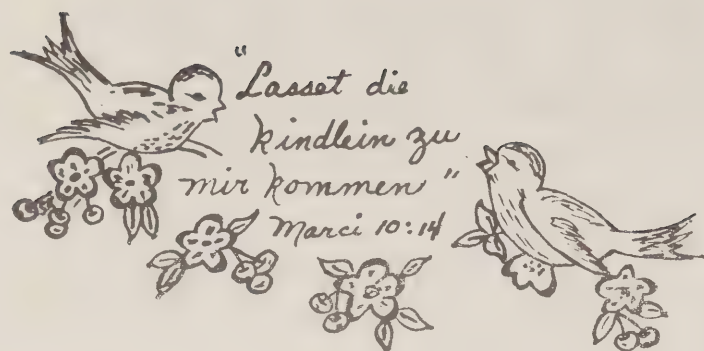 "Lasset die
kindlein zu
mir kommen"
Marci 10:14